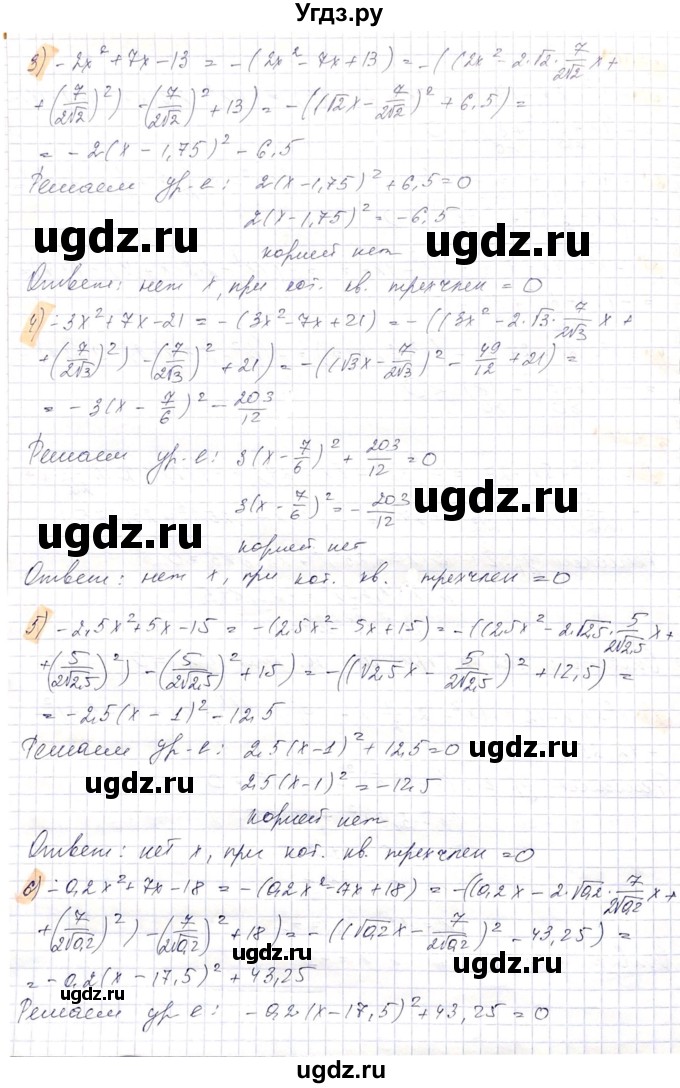 Угдз.ру
3) -2x² + 7x - 13 = -(2x² - 7x + 13) = -((2x² - 2·√2·7/(2√2) x +
+ (7/(2√2))²) - (7/(2√2))² + 13) = -((√2x - 7/(2√2))² + 6,5) =
= -2(x - 1,75)² - 6,5
Решаем ур-е: 2(x - 1,75)² + 6,5 = 0
2(x - 1,75)² = -6,5
корней нет
Ответ: нет x, при кот. кв. трехчлен = 0
4) -3x² + 7x - 21 = -(3x² - 7x + 21) = -((3x² - 2·√3·7/(2√3) x +
+ (7/(2√3))²) - (7/(2√3))² + 21) = -((√3x - 7/(2√3))² - 49/12 + 21) =
= -3(x - 7/6)² - 203/12
Решаем ур-е: 3(x - 7/6)² + 203/12 = 0
3(x - 7/6)² = -203/12
корней нет
Ответ: нет x, при кот. кв. трехчлен = 0
5) -2,5x² + 5x - 15 = -(2,5x² - 5x + 15) = -((2,5x² - 2·√2,5·5/(2√2,5) x +
+ (5/(2√2,5))²) - (5/(2√2,5))² + 15) = -((√2,5x - 5/(2√2,5))² + 12,5) =
= -2,5(x - 1)² - 12,5
Решаем ур-е: 2,5(x - 1)² + 12,5 = 0
2,5(x - 1)² = -12,5
корней нет
Ответ: нет x, при кот. кв. трехчлен = 0
6) -0,2x² + 7x - 18 = -(0,2x² - 7x + 18) = -((0,2x - 2·√0,2·7/(2√0,2) x +
+ (7/(2√0,2))²) - (7/(2√0,2))² + 18) = -((√0,2x - 7/(2√0,2))² - 43,25) =
= -0,2(x - 17,5)² + 43,25
Решаем ур-е: -0,2(x - 17,5)² + 43,25 = 0
ugdz.ru
ugdz.ru
ugdz.ru
ugdz.ru
ugdz.ru
ugdz.ru
ugdz.ru
ugdz.ru
ugdz.ru
ugdz.ru